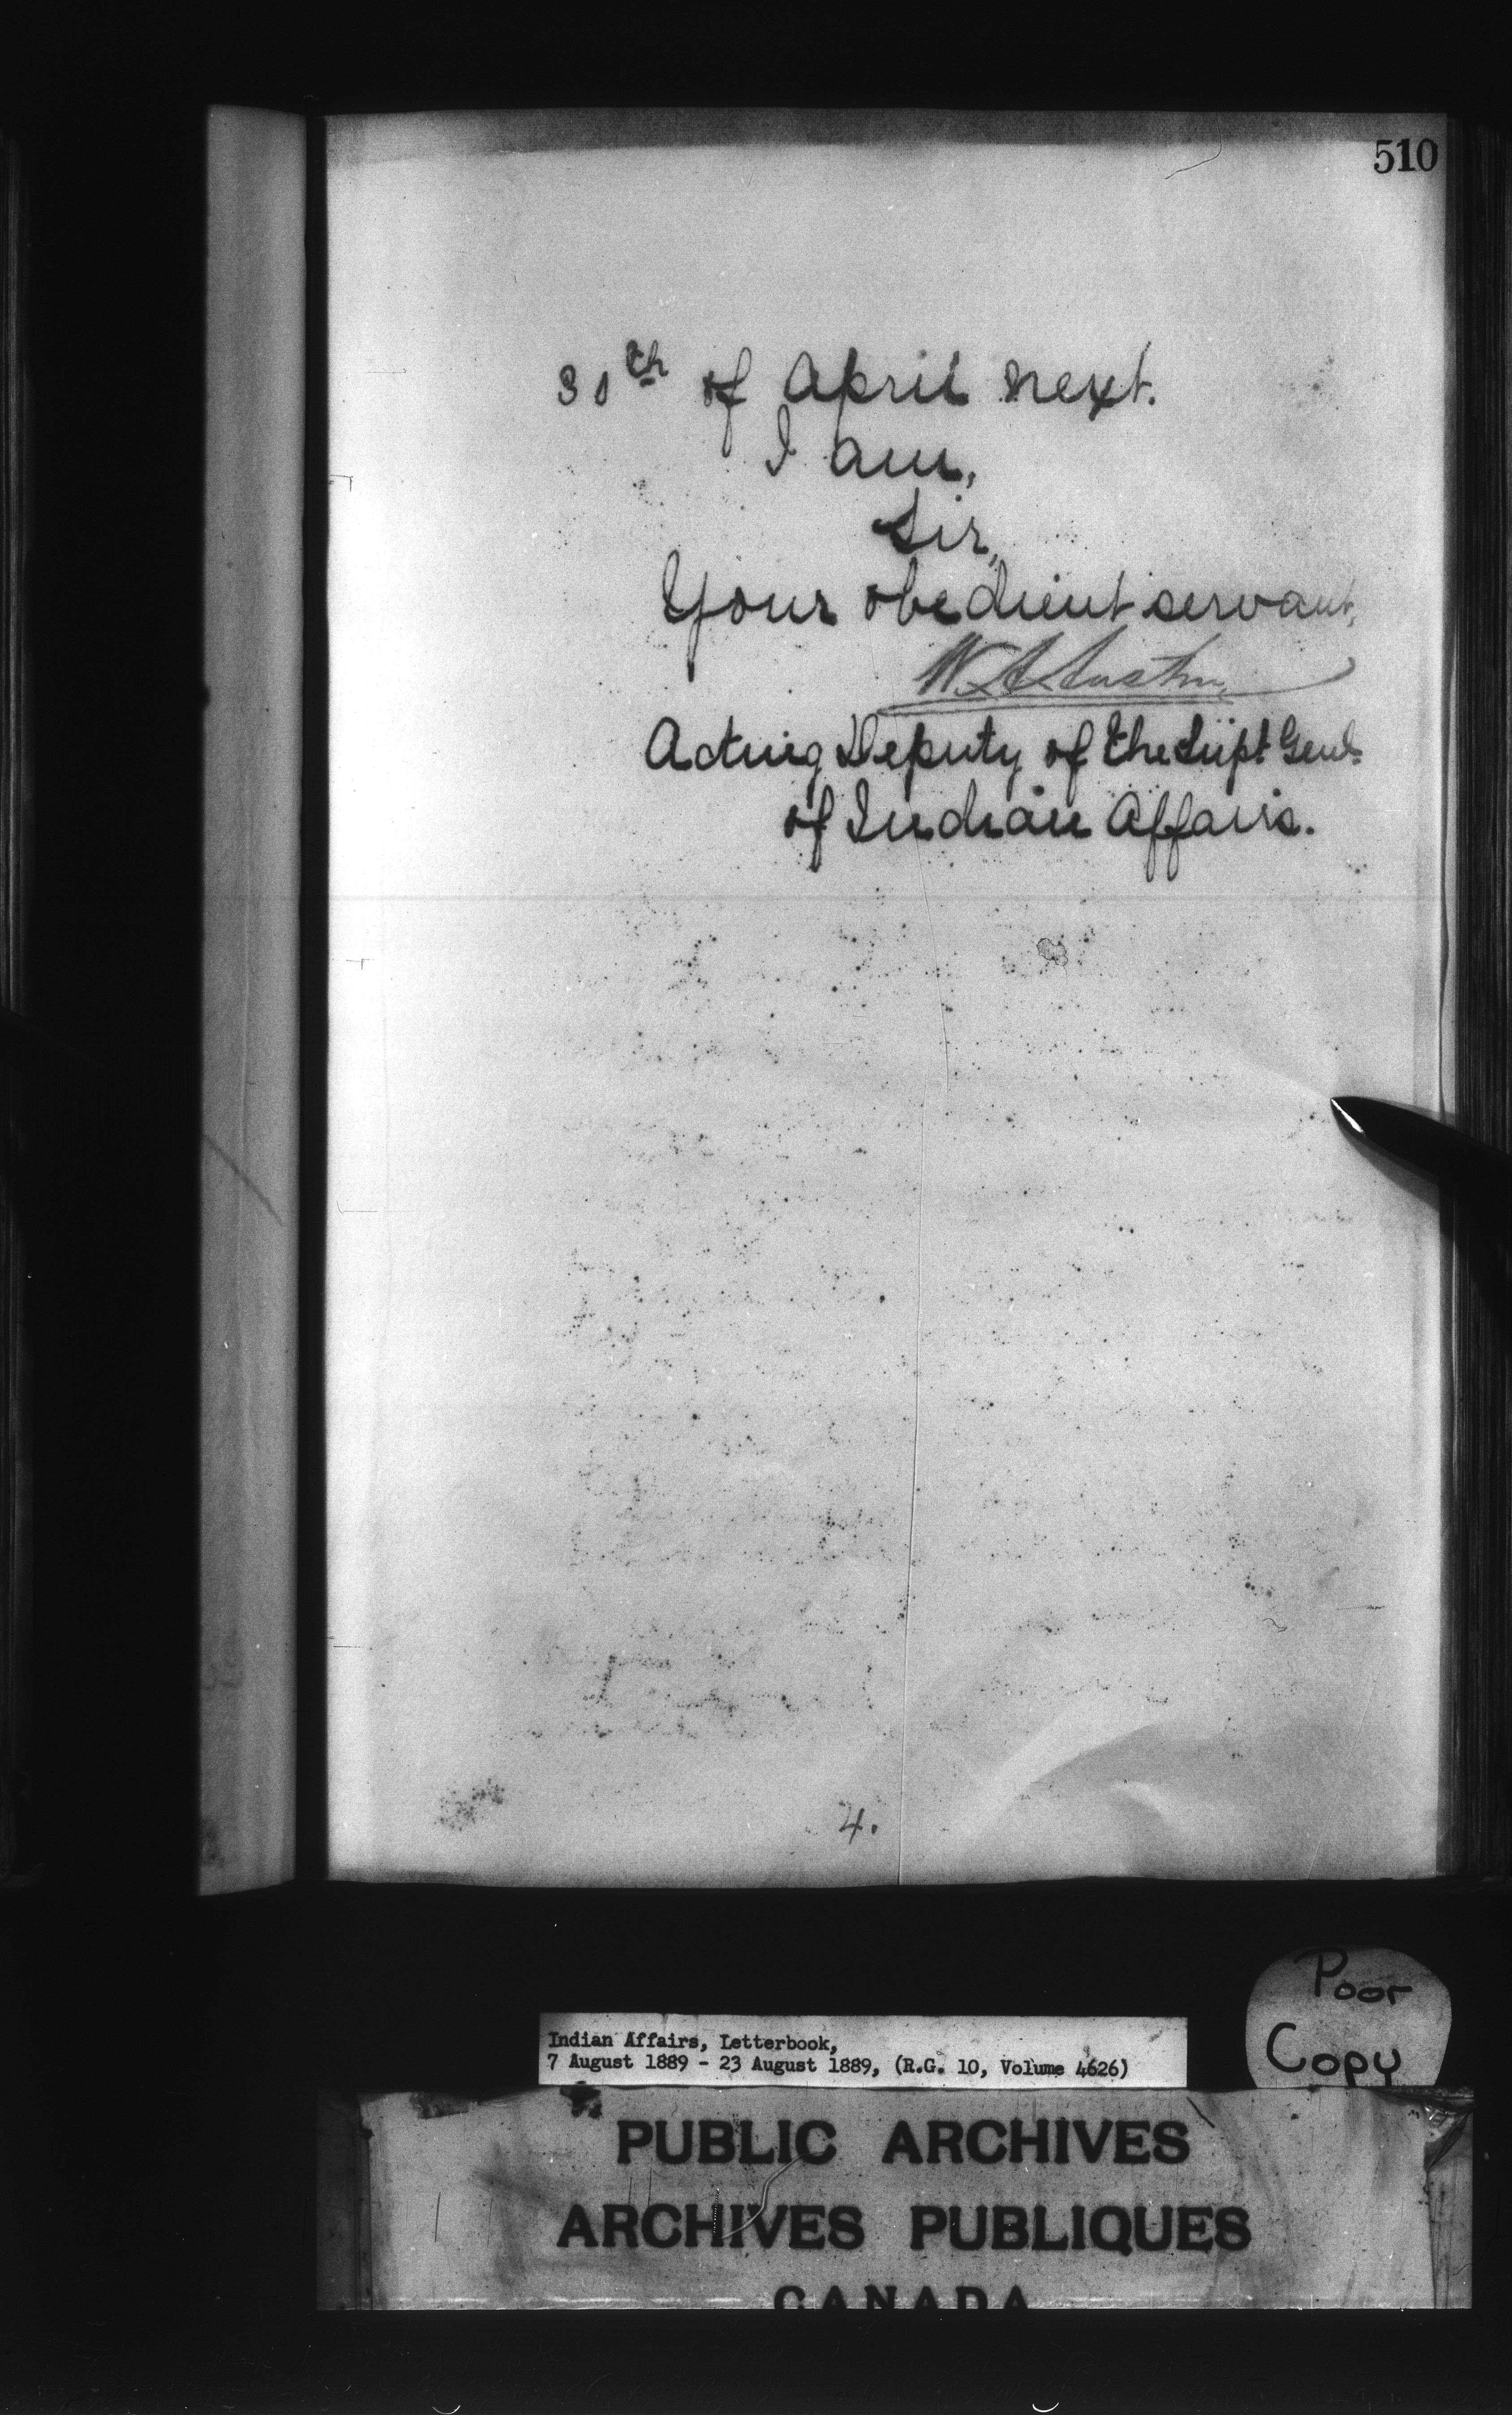 510
30th of April next.
I am,
Sir,
Your obedient servant,
W. A. Austin
Acting Deputy of the Supt Genl.
of Indian Affairs.
4.
Poor
Copy
Indian Affairs, Letterbook,
7 August 1889 - 23 August 1889, (R.G. 10, Volume 4626)
PUBLIC ARCHIVES
ARCHIVES PUBLIQUES
CANADA